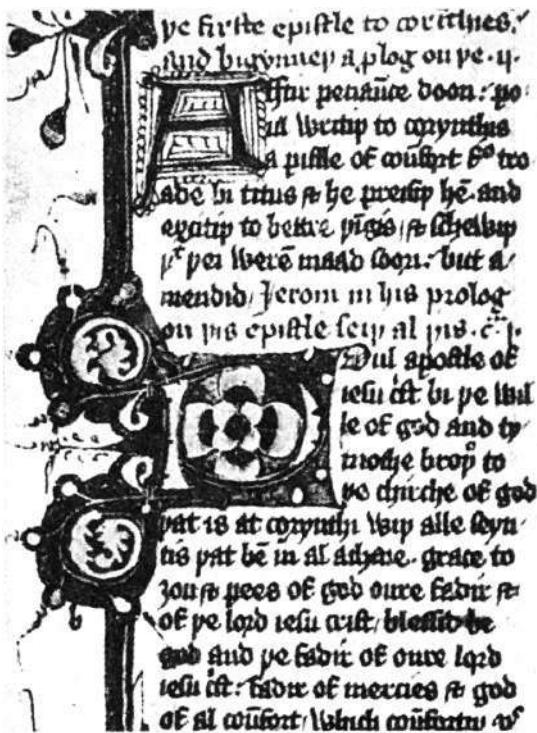 þe firste epistle to corinthies.
and bigynneþ a plog on þe .ij.
Aftir penaūce doon: po
ul writiþ to corynthis
a pistle of coūfort fro tro
ade bi titus & he preisiþ hē. and
excitiþ to betere þīgis / & schewiþ
þt þei werē maad soori: but a
mendid / Jerom in his prolog
on þis epistle seiþ al þis. c. i.
Poul apostle of
iesu c̄st bi þe wil
le of god and ty
mothe broþ to
þe chirche of god
þat is at corynthi wiþ alle seyn
tis þat bē in al achaie. grace to
ȝou & pees of god oure fadir &
of þe lord iesu crist / blessid be
god and þe fadir of oure lord
iesu c̄st: fadir of mercies & god
of al coūfort / which coūfortiþ us